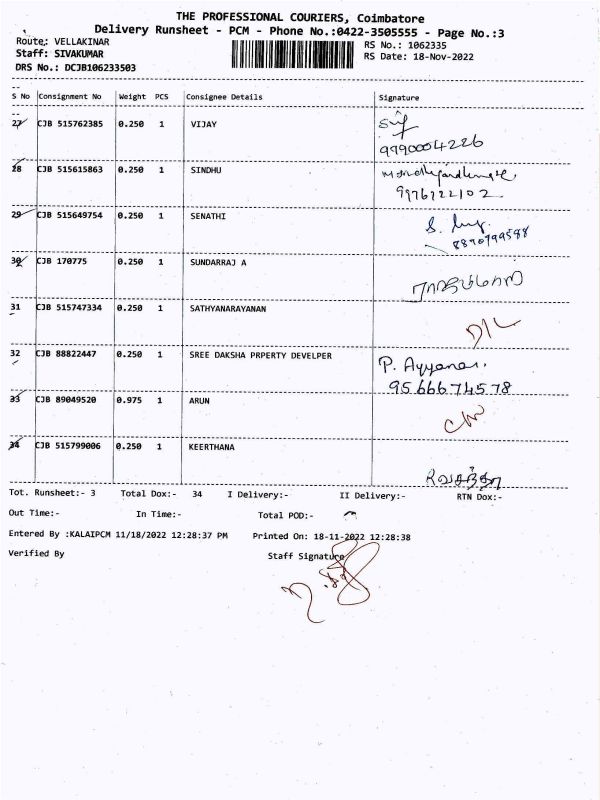 THE PROFESSIONAL COURIERS, Coimbatore
Delivery Runsheet - PCM - Phone No.:0422-3505555 - Page No.:3
Route: VELLAKINAR
RS No.: 1062335
Staff: SIVAKUMAR
RS Date: 18-Nov-2022
DRS No.: DCJB106233503
S No Consignment No Weight PCS Consignee Details Signature
27 CJB 515762385 0.250 1 VIJAY
9990004226
28 CJB 515615863 0.250 1 SINDHU
9976722102
29 CJB 515649754 0.250 1 SENATHI
8890799588
30 CJB 170775 0.250 1 SUNDARRAJ A
31 CJB 515747334 0.250 1 SATHYANARAYANAN
D/L
32 CJB 88822447 0.250 1 SREE DAKSHA PRPERTY DEVELPER P. Ayyanar.
95.66674578
33 CJB 89049520 0.975 1 ARUN
34 CJB 515799006 0.250 1 KEERTHANA
Tot. Runsheet:- 3 Total Dox:- 34 I Delivery:- II Delivery:- RTN Dox:-
Out Time:- In Time:- Total POD:-
Entered By :KALAIPCM 11/18/2022 12:28:37 PM Printed On: 18-11-2022 12:28:38
Verified By Staff Signature